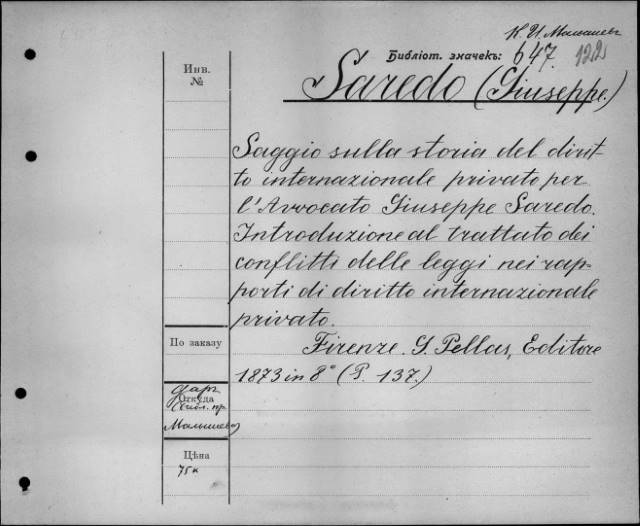 К. И. Малышевъ
Библіот. значекъ: 647. 122
Инв.
№
Saredo (Giuseppe.)
Saggio sulla storia del dirit-
to internazionale privato per
l'Avvocato Giuseppe Saredo.
Introduzione al trattato dei
conflitti delle leggi nei rap-
porti di diritto internazionale
privato.
По заказу
Firenze. G. Pellas, Editore
1873 in 8° (P. 137.)
даръ
Откуда
Малышева
Цѣна
75 к